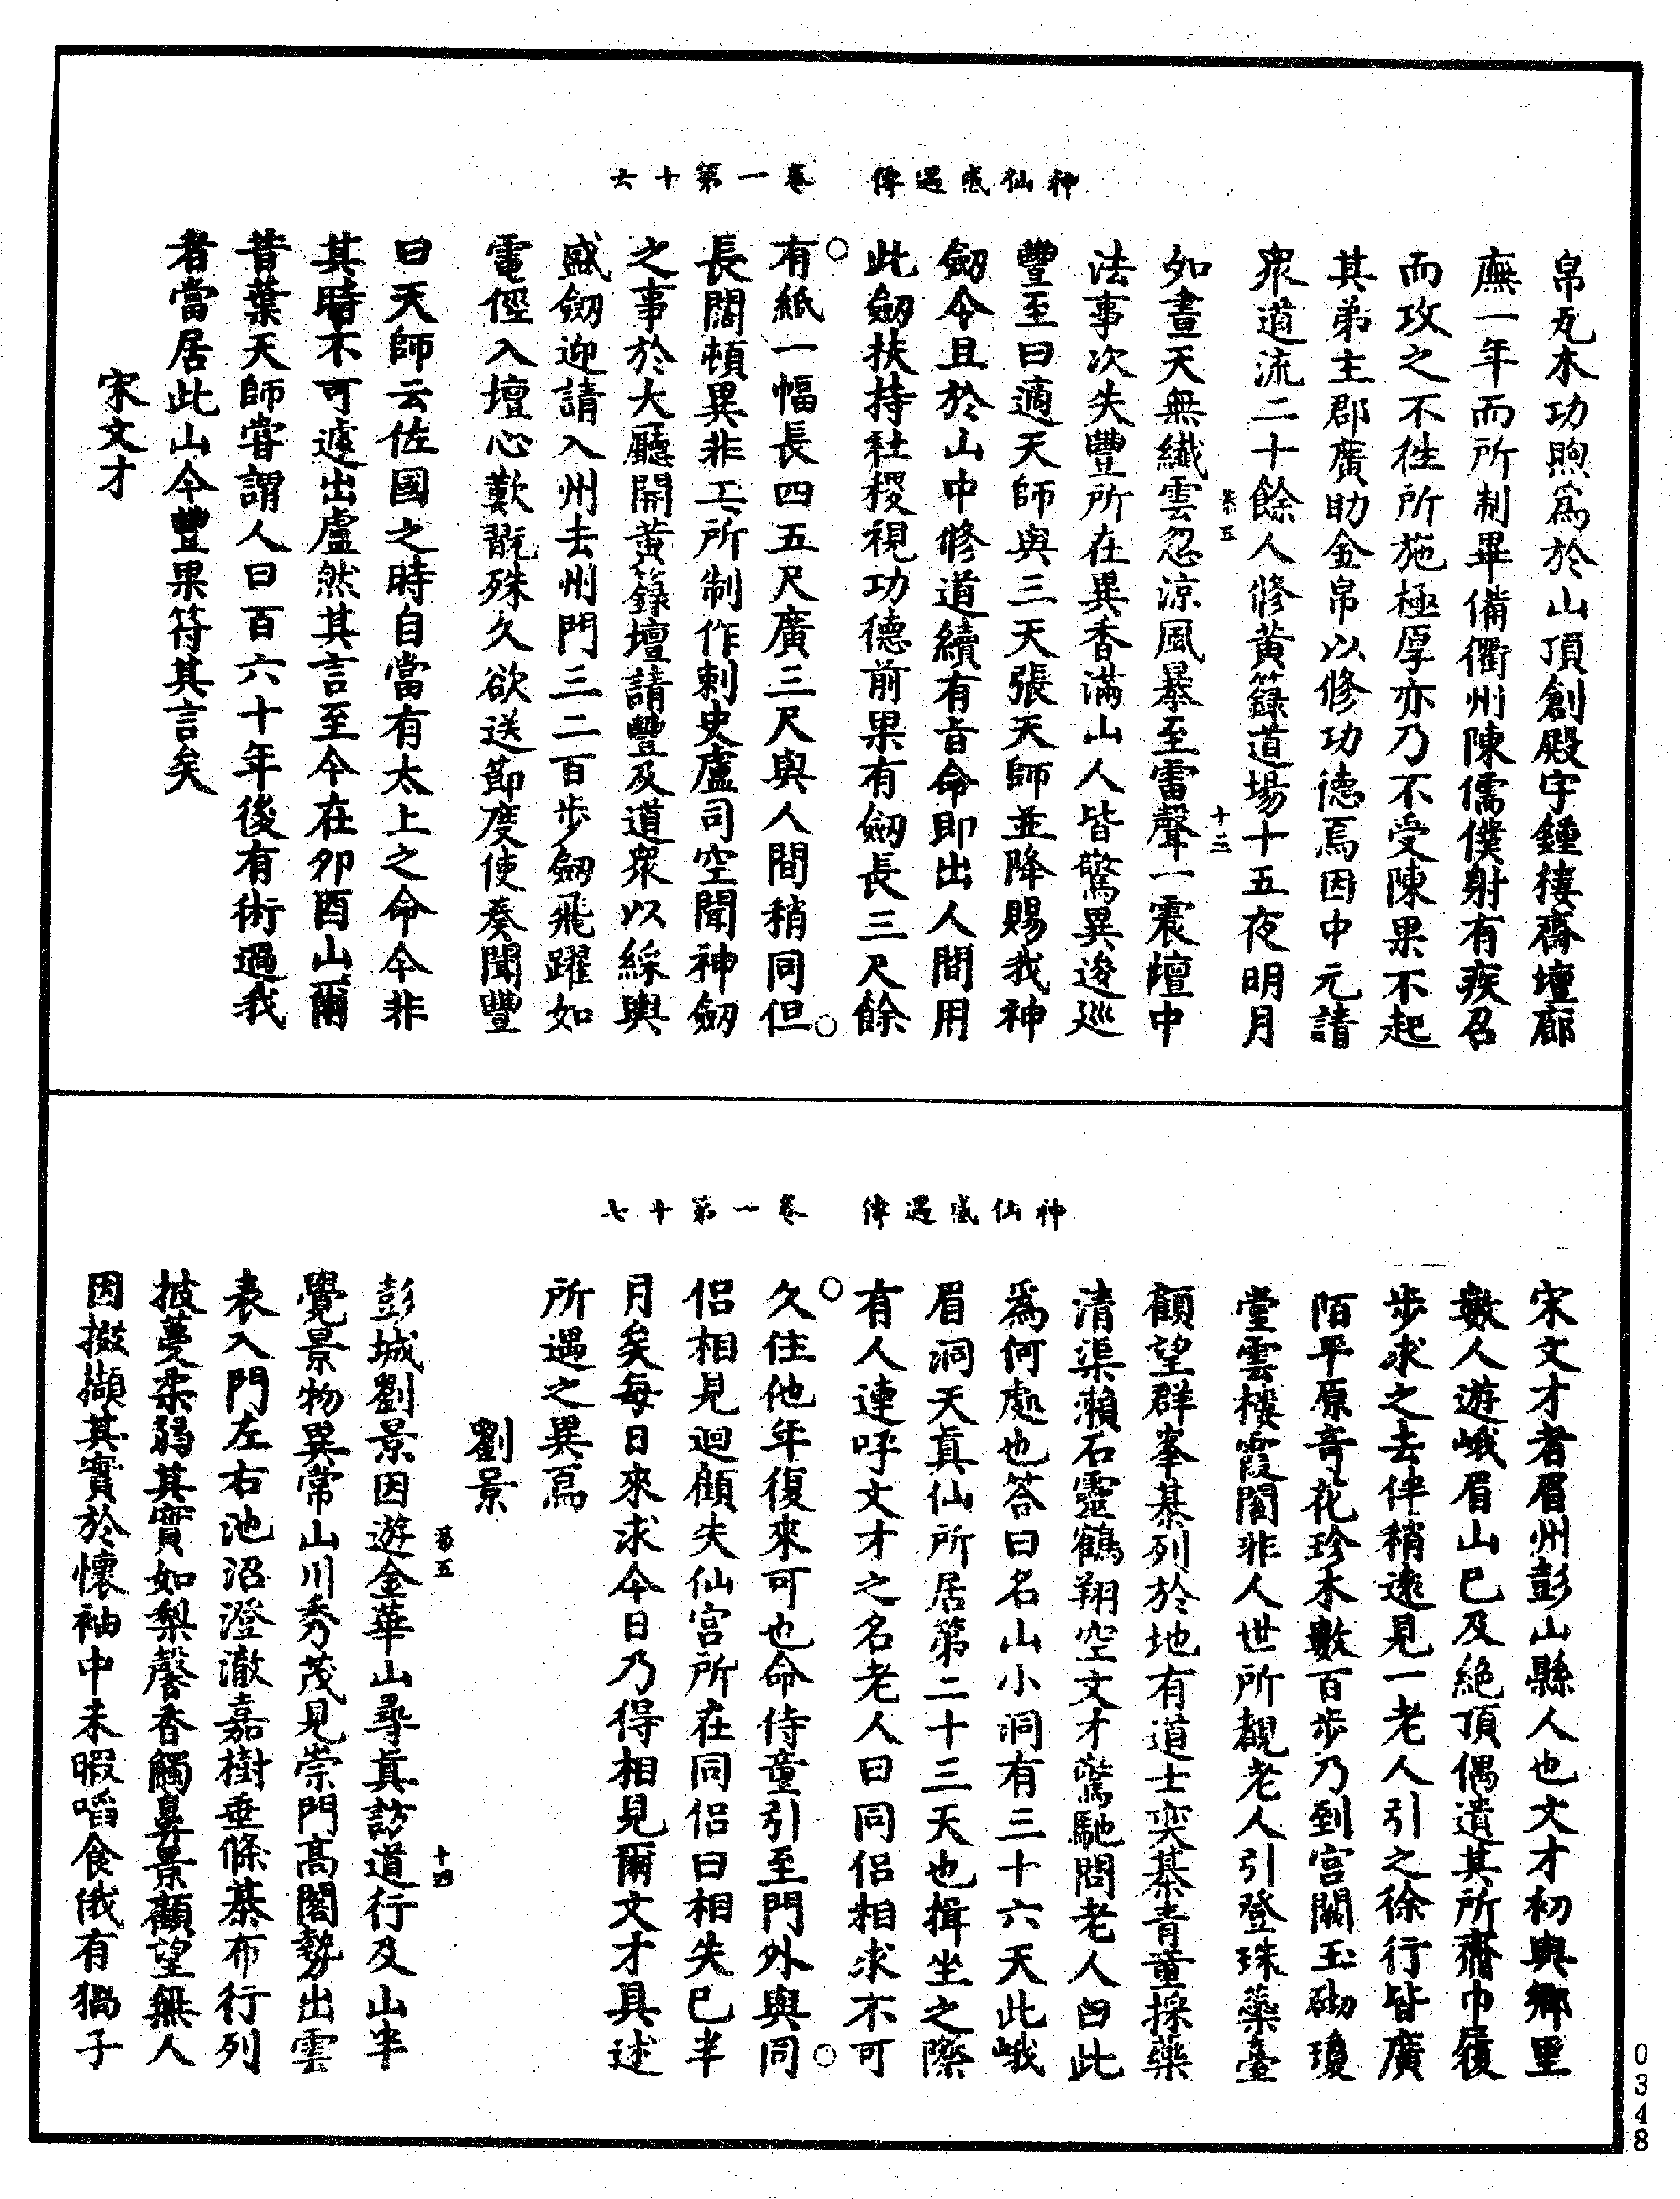 神仙感遇傳　卷一第十六
帛瓦木功煦爲於山頂創殿宇鍾樓齋壇廊
廡一年而所制畢備衢州陳儒僕射有疾召
而攻之不徃所施極厚亦乃不受陳果不起
其弟主郡廣助金帛以修功德焉因中元請
衆道流二十餘人修黃籙道場十五夜明月
恭五　十三
如晝天無纖雲忽涼風暴至雷聲一震壇中
法事次失豐所在異香滿山人皆驚異逡巡
豐至曰適天師與三天張天師並降賜我神
劒今且於山中修道續有旨命即出人間用
此劒扶持社稷視功德前果有劒長三尺餘
有紙一幅長四五尺廣三尺與人間稍同但
長闊頓異非工所制作刺史盧司空聞神劒
之事於大廳開黃籙壇請豐及道衆以綵輿
盛劒迎請入州去州門三二百步劒飛躍如
電徑入壇心歎翫殊久欲送節度使奏聞豐
曰天師云佐國之時自當有太上之命今非
其時不可遽出盧然其言至今在卯酉山爾
昔葉天師嘗謂人曰百六十年後有術過我
者當居此山今豐果符其言矣
宋文才
神仙感遇傳　卷一第十七
宋文才者眉州彭山縣人也文才初與鄉里
數人遊峨眉山已及絕頂偶遺其所齎巾履
步求之去伴稍遠見一老人引之徐行皆廣
陌平原奇花珍木數百步乃到宮闕玉砌瓊
堂雲樓霞閣非人世所覩老人引登珠蘂臺
顧望群峯棊列於地有道士奕棊青童採藥
清渠瀨石靈鶴翔空文才驚馳問老人曰此
爲何處也答曰名山小洞有三十六天此峨
眉洞天真仙所居第二十三天也揖坐之際
有人連呼文才之名老人曰同侶相求不可
久住他年復來可也命侍童引至門外與同
侶相見迴顧失仙宮所在同侶曰相失已半
月矣每日來求今日乃得相見爾文才具述
所遇之異焉
劉景
恭五　十四
彭城劉景因遊金華山尋真訪道行及山半
覺景物異常山川秀茂見崇門高閣勢出雲
表入門左右池沼澄澈嘉樹垂條棊布行列
披蔓柔弱其實如梨馨香觸鼻景顧望無人
因掇擷其實於懷袖中未暇啗食俄有猧子
0348